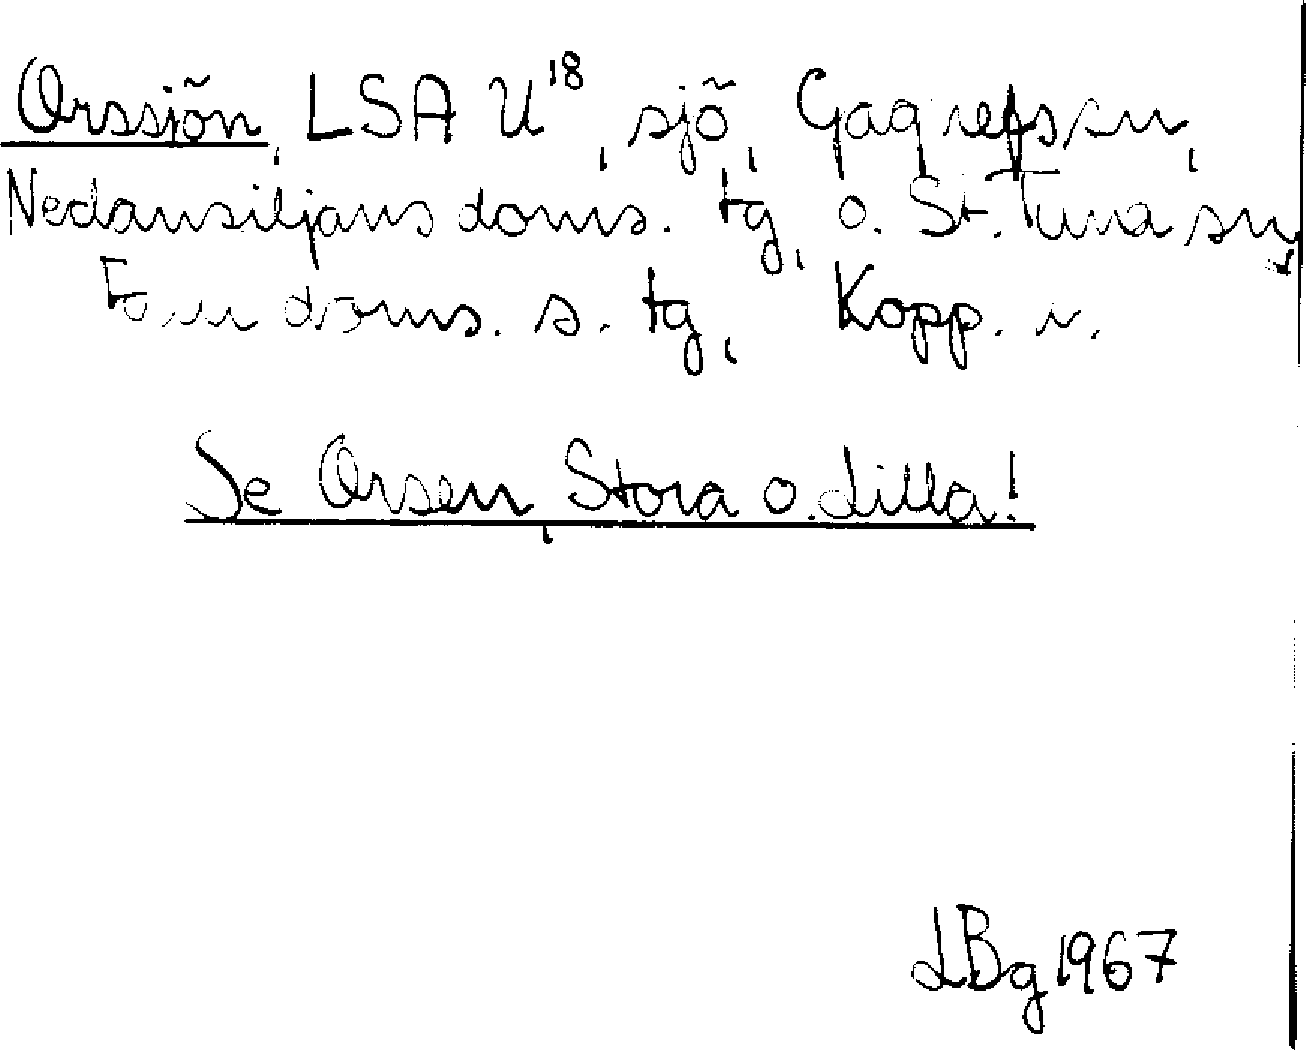 Orssjön, LSA U18, sjö, Gagnefs sn,
Nedansiljans doms. tg, o. St. Tuna sn,
Falu doms. s. tg, Kopp. l.
Se Orsen, Stora o. Lilla!
LBg 1967